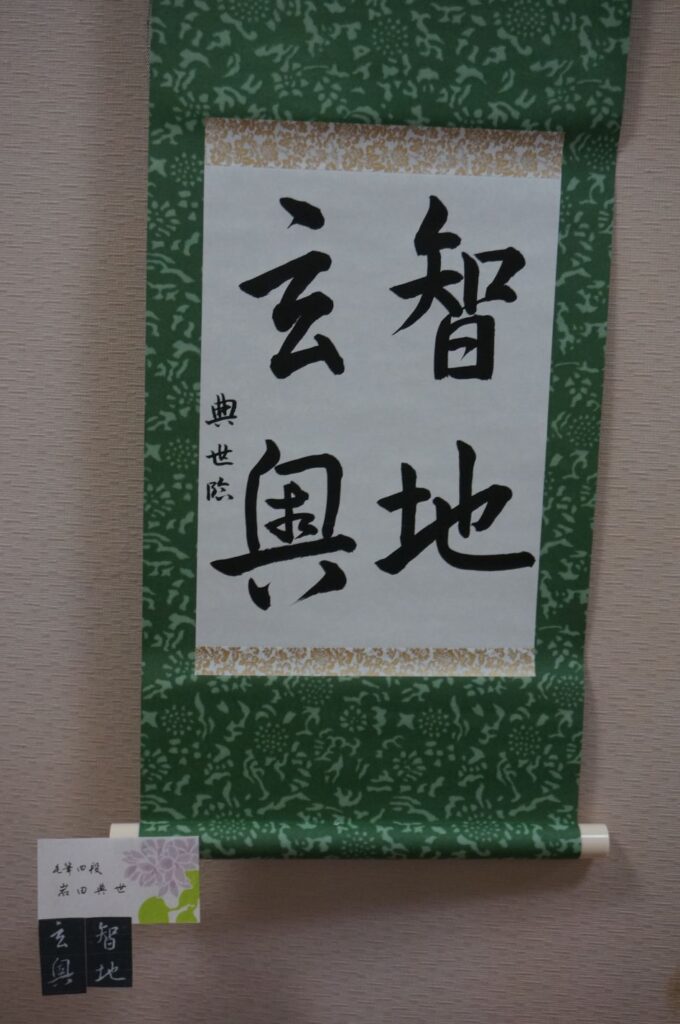 智地
玄奥
典世臨
毛筆四段
岩田典世
智地
玄奥